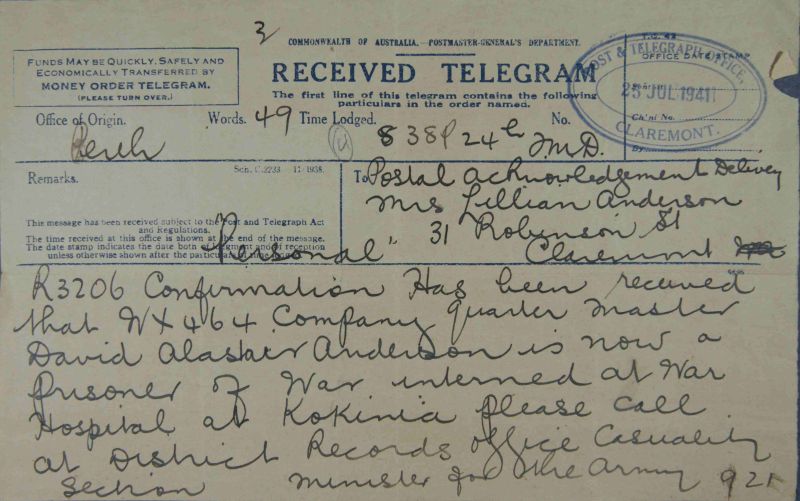 3
COMMONWEALTH OF AUSTRALIA.—POSTMASTER-GENERAL'S DEPARTMENT.
FUNDS MAY BE QUICKLY, SAFELY AND
ECONOMICALLY TRANSFERRED BY
MONEY ORDER TELEGRAM.
(PLEASE TURN OVER.)
RECEIVED TELEGRAM
The first line of this telegram contains the following
particulars in the order named.
OFFICE DATE STAMP
POST & TELEGRAPH OFFICE,
25 JUL 1941
CLAREMONT.
Office of Origin. Words. 49 Time Lodged. No.
Perth 8 38P 24th
By
Remarks.
Sch. C.2233 11/1938.
This message has been received subject to the Post and Telegraph Act
and Regulations.
The time received at this office is shown at the end of the message.
The date stamp indicates the date both of lodgment and of reception
unless otherwise shown after the particulars of time
To Postal acknowledgement Delivery
Mrs Lillian Anderson
31 Robinson St
Claremont
Personal
R3206 Confirmation Has been received
that WX464 Company quarter master
David Alastair Anderson is now a
prisoner of War interned at War
Hospital at Kokinia please call
at District Records office Casuality
Section Minister for the Army 921